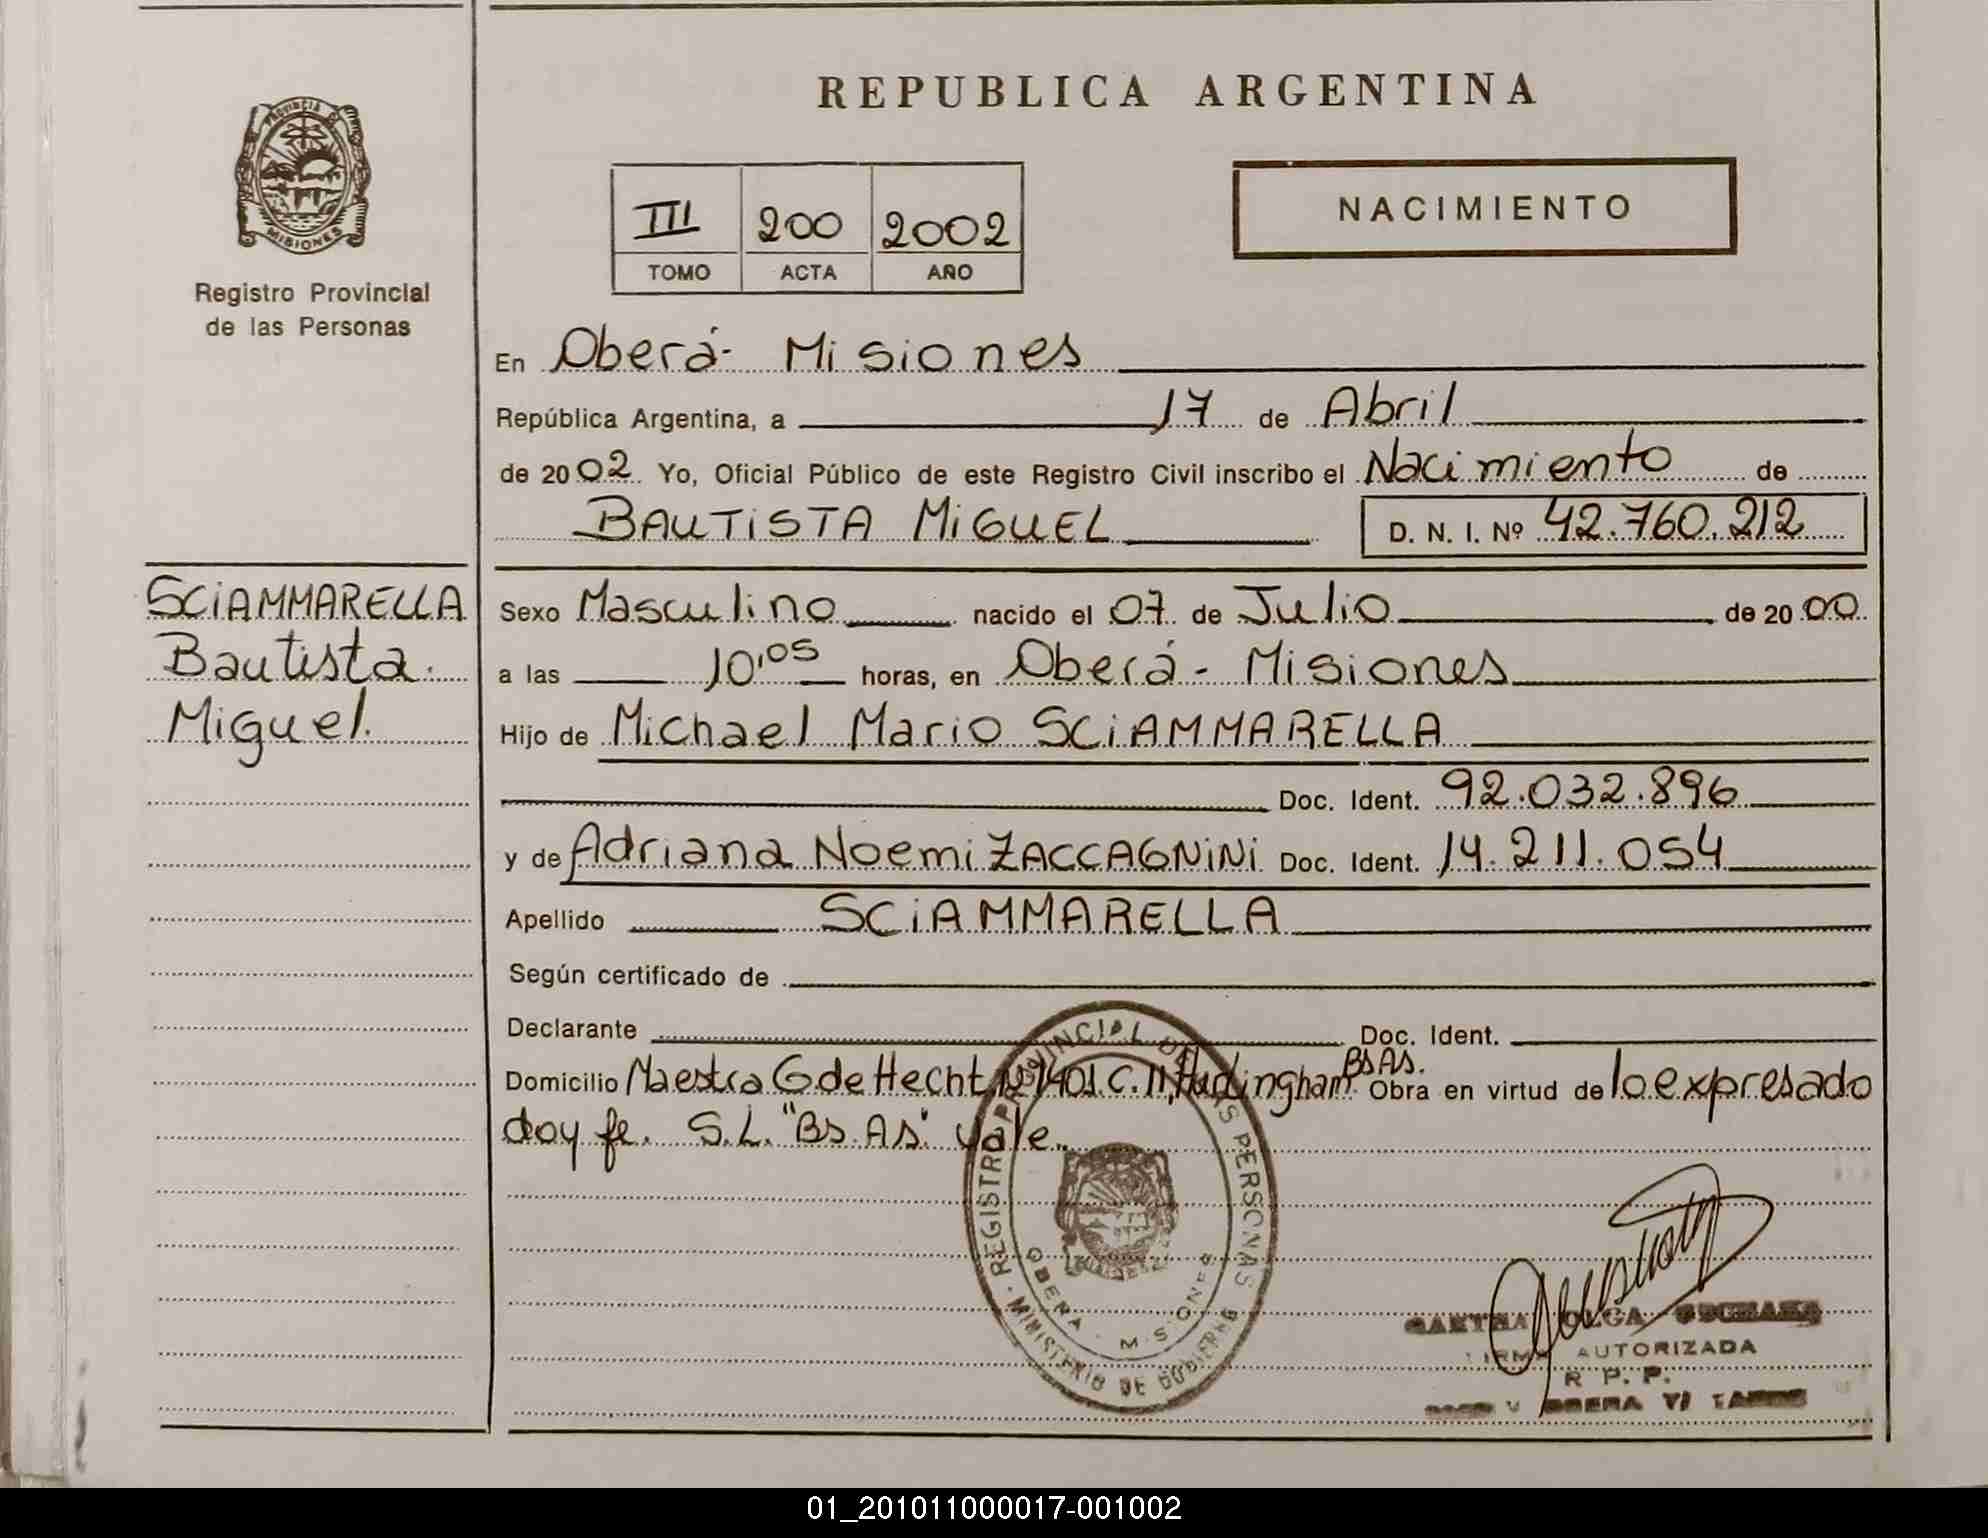 REPUBLICA ARGENTINA
PROVINCIA DE
MISIONES
Registro Provincial
de las Personas
III 200 2002
TOMO ACTA AÑO
NACIMIENTO
En Oberá- Misiones
República Argentina, a 17 de Abril
de 2002 Yo, Oficial Público de este Registro Civil inscribo el Nacimiento de
BAUTISTA MIGUEL D. N. I. Nº 42.760.212
SCIAMMARELLA
Bautista
Miguel.
Sexo Masculino nacido el 07 de Julio de 2000
a las 10,05 horas, en Oberá- Misiones
Hijo de Michael Mario SCIAMMARELLA
Doc. Ident. 92.032.896
y de Adriana Noemi ZACCAGNINI Doc. Ident. 14.211.054
Apellido SCIAMMARELLA
Según certificado de
Declarante Doc. Ident.
Domicilio Maestra G de Hecht Nº 1401 C. 11, Hurlingham BS AS. Obra en virtud de lo expresado
doy fe. S.L. "Bs. As" Vale.
REGISTRO PROVINCIAL DE LAS PERSONAS
MINISTERIO DE GOBIERNO
OBERA - MISIONES
OLGA
FIRMA AUTORIZADA
R. P. P.
OBERA
01_201011000017-001002